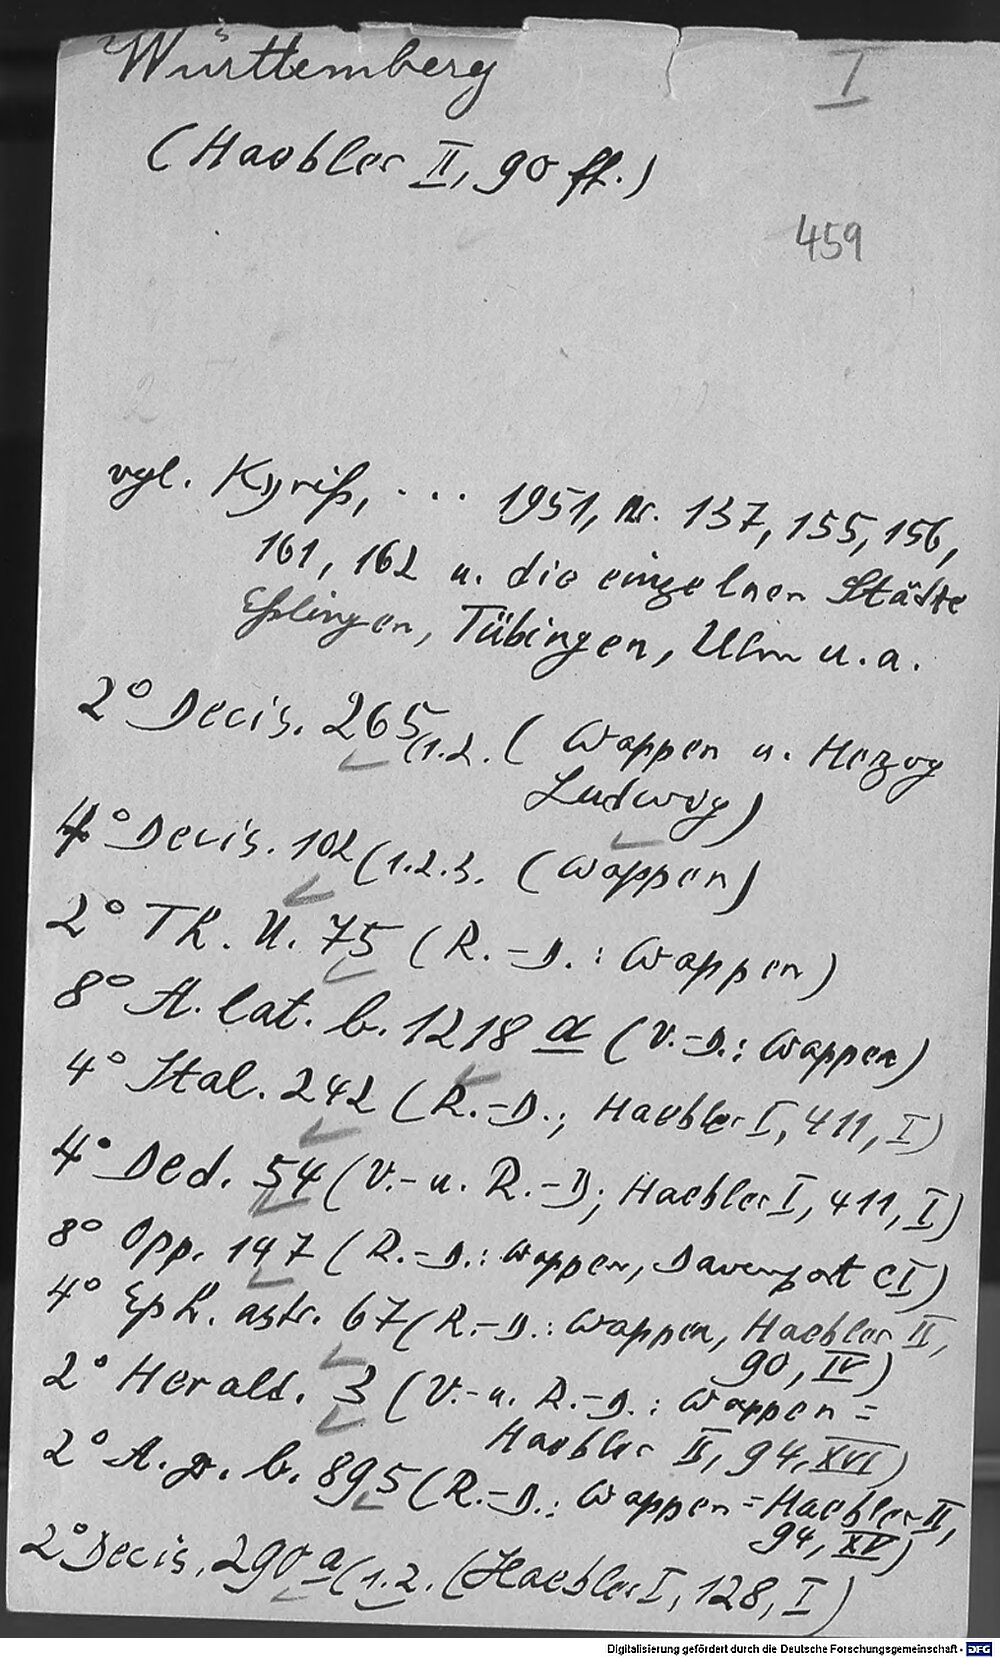 Württemberg
I
(Haebler II, 90 ff.)
459
vgl. Kyriß, ... 1951, Nr. 137, 155, 156,
161, 162 u. die einzelnen Städte
Eßlingen, Tübingen, Ulm u. a.
2° Decis. 265(1.2. (Wappen u. Herzog
Ludwig)
4° Decis. 102(1.2.3. (Wappen)
2° Th. U. 75 (R.-D.: Wappen)
8° A. lat. b. 1218 a (V.-D.: Wappen)
4° Ital. 242 (R.-D.; Haebler I, 411, I)
4° Ded. 54 (V.- u. R.-D; Haebler I, 411, I)
8° Opp. 147 (R.-D.: Wappen, Davenport CI)
4° Eph. astr. 67 (R.-D.: Wappen, Haebler II,
90, IV)
2° Herald. 3 (V.- u. R.-D.: Wappen =
Haebler II, 94, XVI)
2° A. gr. b. 895 (R.-D.: Wappen = Haebler II,
94, XV)
2° Decis. 290 a(1.2. (Haebler I, 128, I)
Digitalisierung gefördert durch die Deutsche Forschungsgemeinschaft - DFG